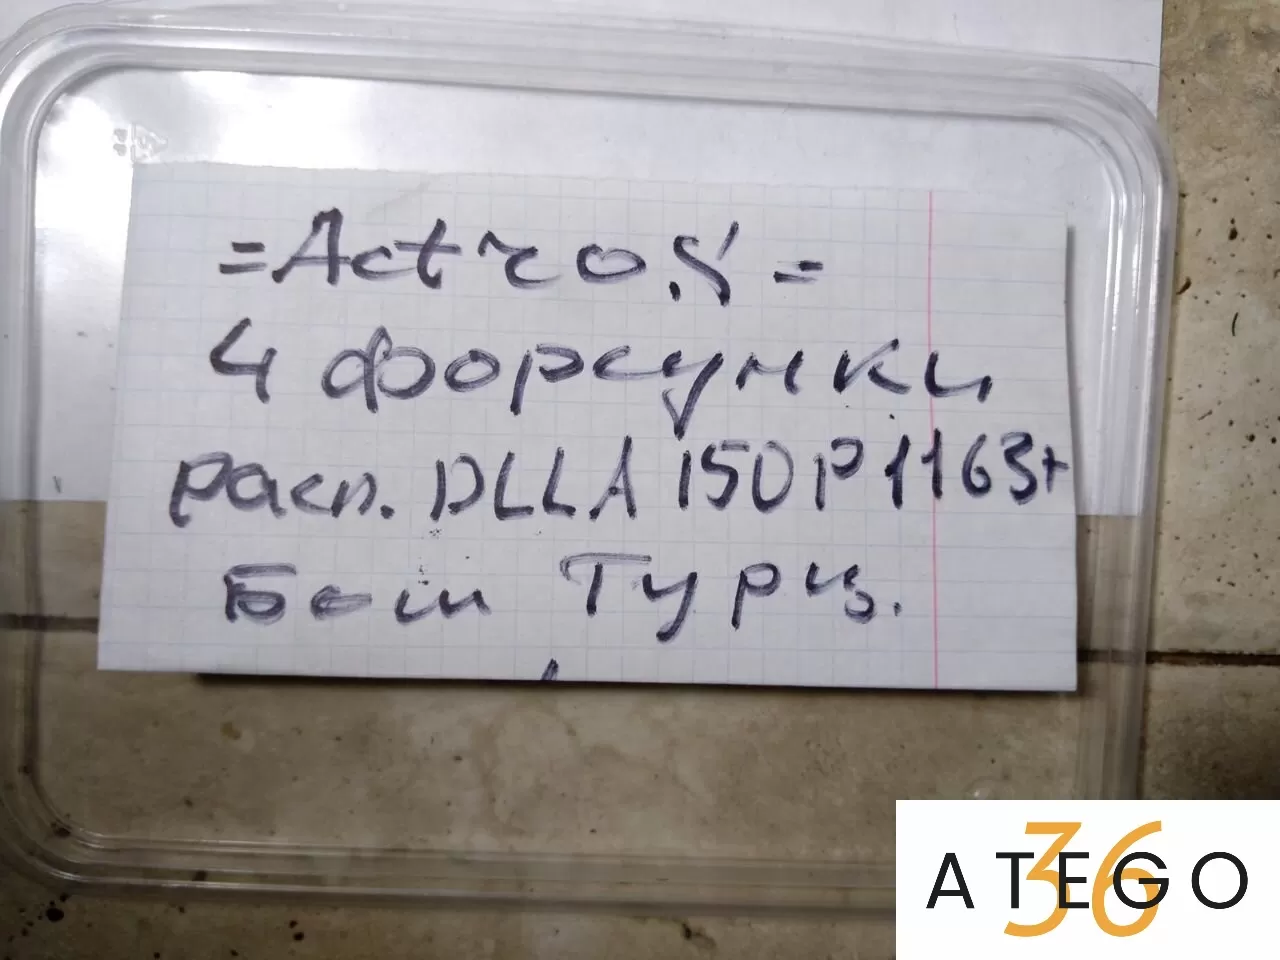 =Actros=
4 форсунки
расп. DLLA 150P1163+
Бош Турц.
ATEGO
36